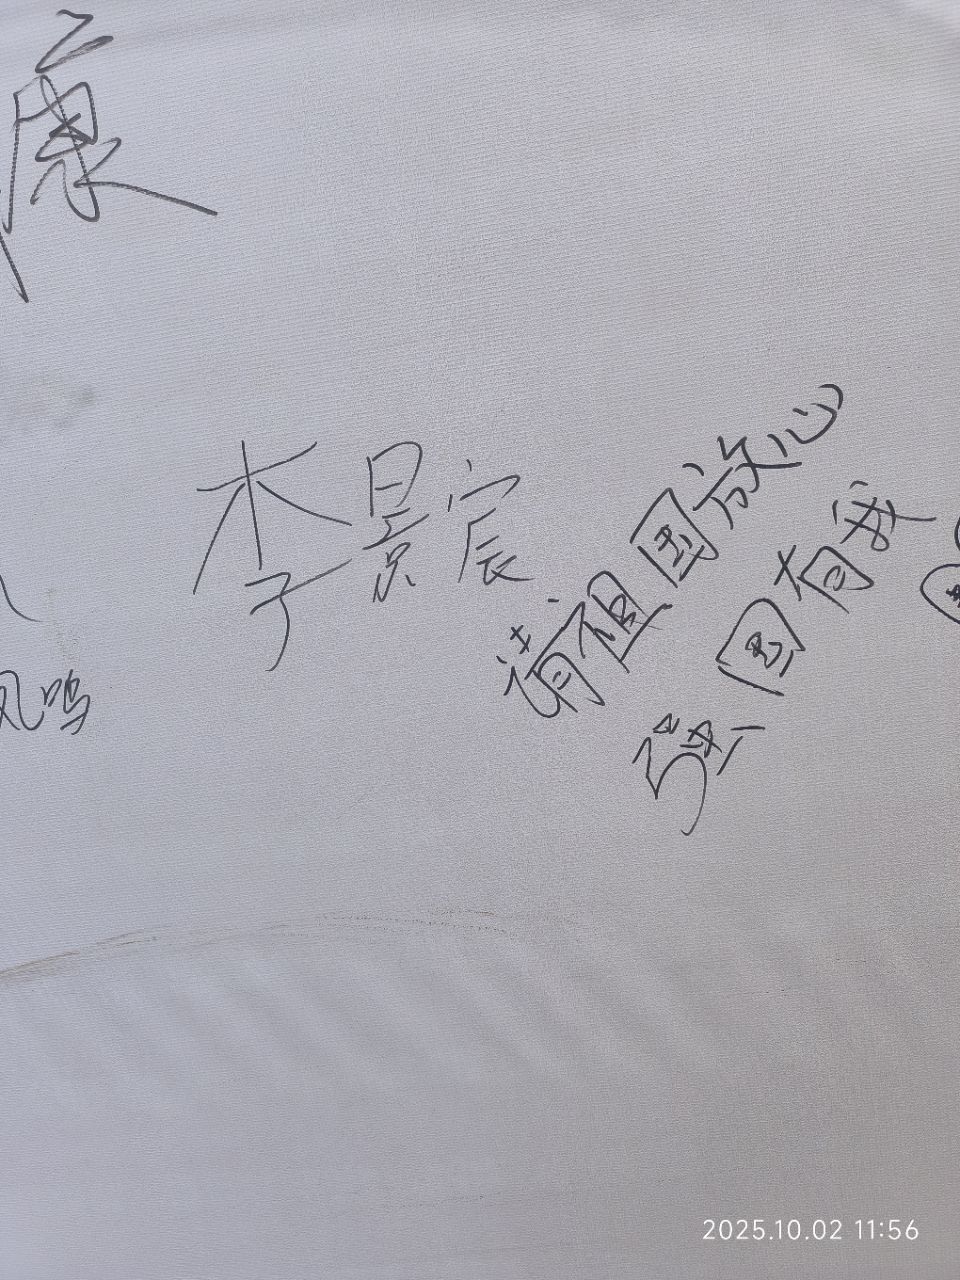 康
李景宸
请祖国放心
强国有我
凤鸣
2025.10.02 11:56